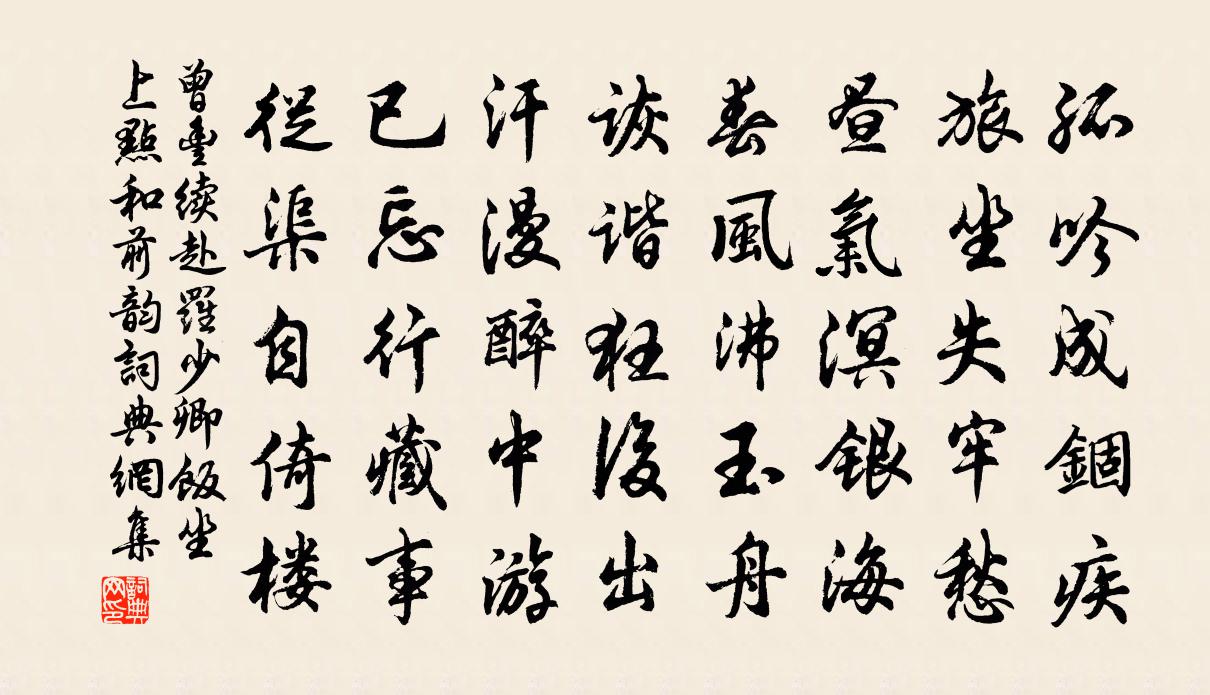 孤吟成錮疾
旅坐失牢愁
昼氣溟銀海
春風沸玉舟
诙谐狂後出
汗漫醉中游
已忘行藏事
從渠自倚楼
曾豐续赴羅少卿飯坐
上點和前韵詞典網集
詞典网印